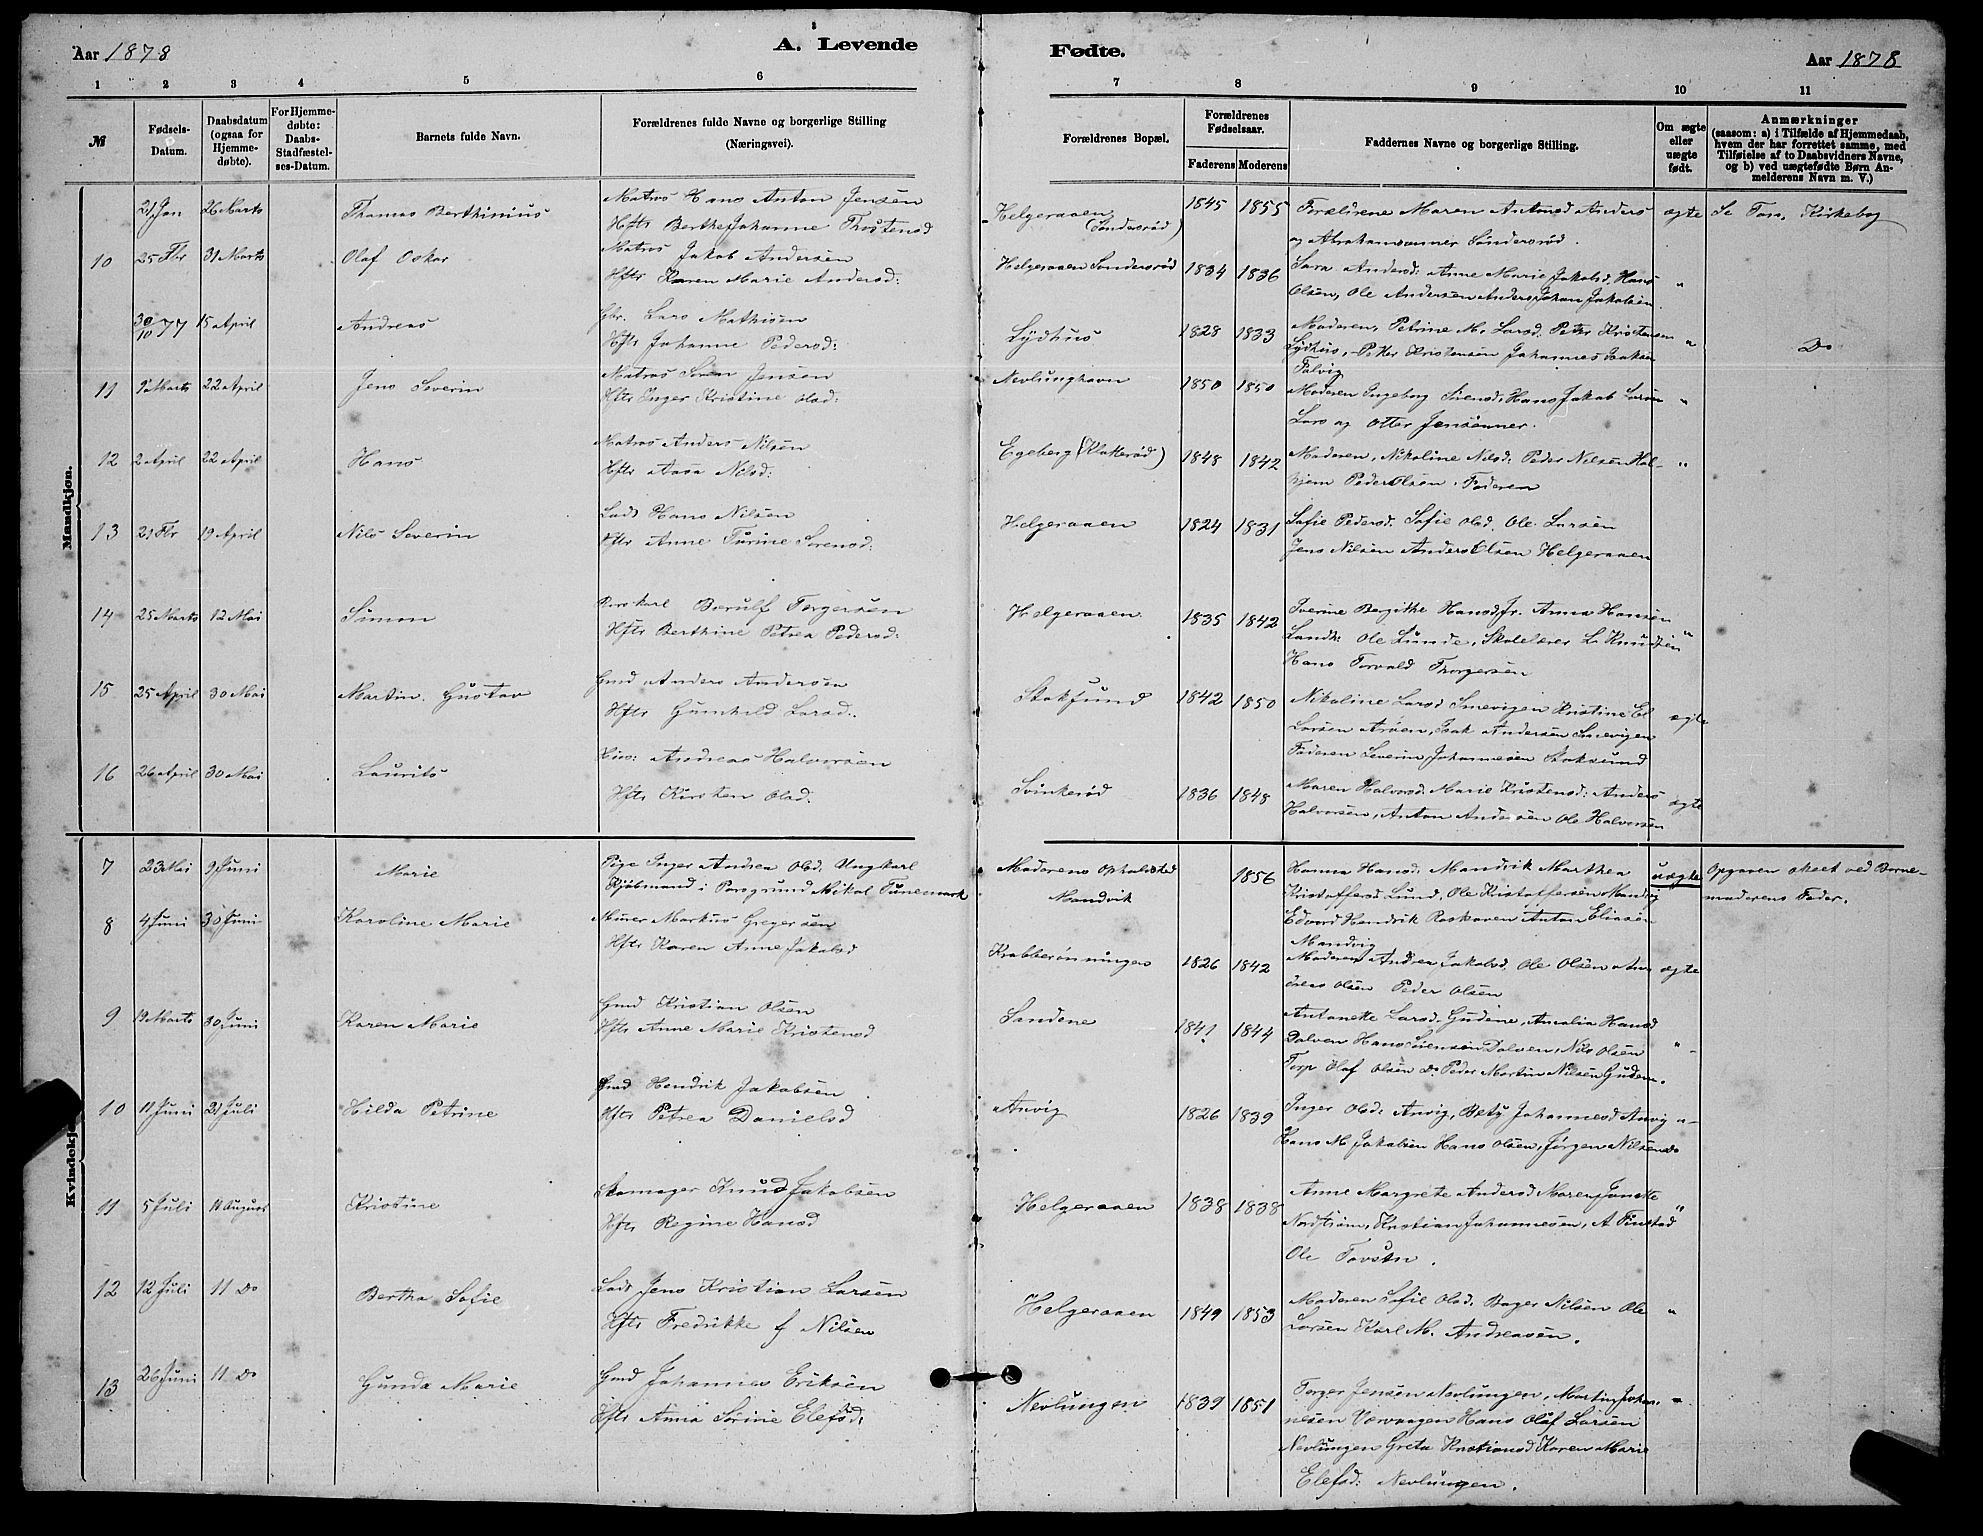 Aar 1878 A. Levende Fødte. Aar 1878
1 2 3 4 5 6 7 8 9 10 11
№
Fødsels-Datum.
Daabsdatum (ogsaa for Hjemme-døbte).
For Hjemme-døbte: Daabs-Stadfæstel-ses-Datum.
Barnets fulde Navn.
Forældrenes fulde Navne og borgerlige Stilling (Næringsvei).
Forældrenes Bopæl.
Forældrenes Fødselsaar.
Faderens Moderens
Faddernes Navne og borgerlige Stilling.
Om ægte eller uægte født.
Anmærkninger
(saasom: a) i Tilfælde af Hjemmedaab,
hvem der har forrettet samme, med
Tilføielse af to Daabsvidners Navne,
og b) ved uægtefødte Børn An-
melderens Navn m. V.)
Mandkjøn.
21 Jan 26 Marts Thomas Berthinius Matros Hans Anton Jensen
Hftr Berthe Johanne Thostensd
Helgeraaen (Søndersrød) 1845 1855 Forældrene Maren Antonsd Anders
og Abrahamsønner Søndersrød. ægte Se Tons. Kirkebog
10 25 Fbr 31 Marts Olaf Oskar Matros Jakob Andersen
Hftr Karen Marie Andersd:
Helgeraaen Søndersrød 1834 1836 Sara Andersd: Anne Marie Jakobsd, Hans
Olsen, Ole Andersen Anders Johan Jakobsen "
30/10 77 15 April Andreas Gbr. Lars Mathisen
Hftr Johanne Pedersd:
Lydhus 1828 1833 Moderen, Petrine M. Larsd. Peter Kristensen
Lydhus, Peter Kristensen Johannes Isaksen
Falvig " Do
11 9 Marts 22 April Jens Severin Matros Søren Jensen
Hftr Inger Kristine Olsd:
Nevlunghavn 1850 1850 Moderen Ingeborg Sørensd, Hans Jakob Larsen
Lars og Otter Jensønner. "
12 2 April 22 April Hans Matros Anders Nilsen
Hftr Aasa Nilsd.
Egeberg (Klokkerød) 1848 1842 Moderen, Nikoline Nilsd: Peder Nilsen Hol-
hjem Peder Olsen. Faderen "
13 21 Fbr 19 April Nils Severin Lods Hans Nilsen
Hftr Anne Turine Sørensd:
Helgeraaen 1824 1831 Sofie Pedersd. Sofie Olsd. Ole Larsen
Jens Nilsen Anders Olsen Helgeraaen
14 25 Marts 12 Mai Simon Børulf Torgersen
Hftr Berthine Petrea Pedersd:
Helgeraaen 1835 1842 Iverine Bergithe Hansd, Jr. Anna Hansen
Landh: Ole Lunde, Skolelærer L. Knudsen
Hans Torvald Thorgersen "
15 25 April 30 Mai Martin Gustav Gmd Anders Andersen
Hftr Gunhild Larsd.
Stoksund 1842 1850 Nikoline Larsd Snevigen Kristine El
Larsen Arøen, Isak Andersen Snevigen
Faderen Severin Johannesen Stoksund ægte
16 26 April 30 Mai Laurits Andreas Halvorsen
Hftr Kirsten Olsd.
Svinkerød 1836 1848 Maren Halvorsd. Marie Kristensd: Anders
Halvorsen, Anton Andersen Ole Halvorsen ægte
Kvindekjøn
7 23 Mai 9 Juni Marie Pige Inger Andrea Olsd. Ungkarl
Kjøbmand i Porsgrund Nikol Tannemark
Moderens Opholdsted Mandvik 1856 Hanna Hansd: Mandvik Marthea
Kristoffersd Lund, Ole Kristoffersen Mandvig
Edvard Hendrik Roskaven Anton Eliasen
Mandvig uægte Opgaven skeet ved Barne-
moderens Fader.
8 4 Juni 30 Juni Karoline Marie Murer Markus Gregersen
Hftr Karen Anne Jakobsd
Krabberønningen 1826 1842 Moderen Andrea Jakobsd. Ole Olsen An-
dreas Olsen Peder Olsen ægte
9 19 Marts 30 Juni Karen Marie Gmd Kristian Olsen
Hftr Anne Marie Kristensd
Sandene 1841 1844 Antonette Larsd. Gudene, Amalia Hansd
Dolven Hans Sørensen Dolven, Nils Olsen
Torp Olaf Olsen Do Peder Martin Nilsen Gudem. "
10 11 Juni 21 Juli Hilda Petrine Gmd Hendrik Jakobsen
Hftr Petrea Danielsd
Anvig 1826 1839 Inger Olsd: Anvig, Bety Johannesd Anvig
Hans M Jakobsen Hans Olsen, Jørgen Nilsen Do "
11 5 Juli 11 August Kristine Skomager Knud Jakobsen
Hftr Regine Hansd
Helgeraaen 1838 1838 Anne Margrete Andersd Maren Janette
Nordstrøm, Kristian Johannesen, A Finstad
Ole Torstn. "
12 12 Juli 11 Do Bertha Sofie Lods Jens Kristian Larsen
Hftr Fredrikke f Nilsen
Helgeraaen 1849 1853 Moderen Sofie Olsd. Bager Nilsen Ole
Larsen Karl M. Andreasen. "
13 26 Juni 11 Do Gunda Marie Gmd Johannes Eriksen
Hftr Anna Sørine Elefsd:
Nevlungen 1839 1851 Torger Jensen Nevlungen, Martin Johan-
nesen Varvaagen Hans Olaf Larsen
Nevlungen Greta Kristiansd Karen Marie
Elefsd: Nevlungen. "